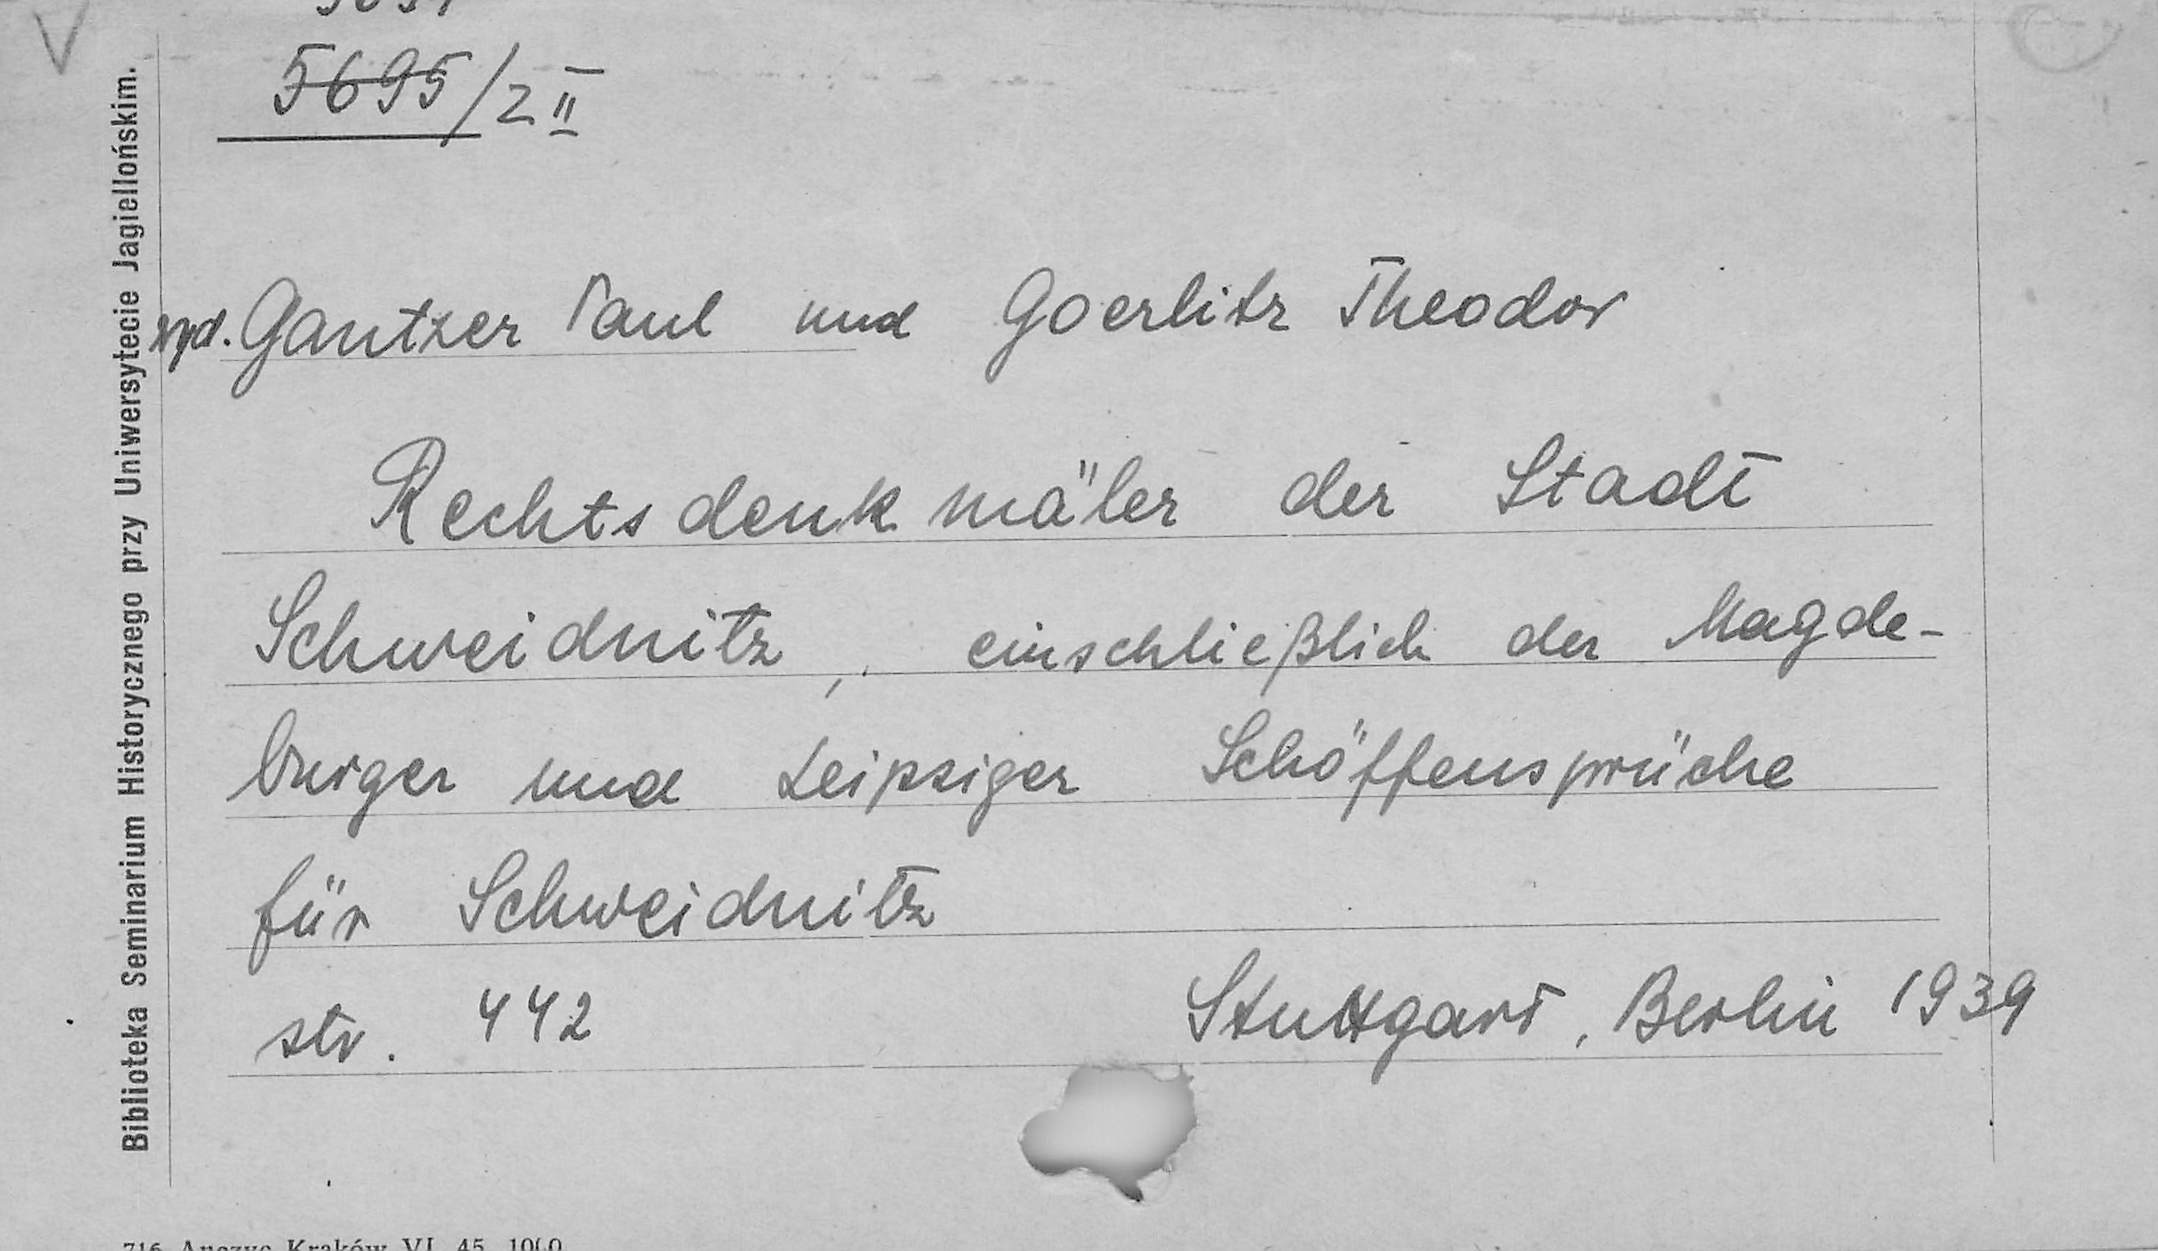 5695/2 II
wyd. Gantzer Paul und Goerlitz Theodor
Rechtsdenkmäler der Stadt
Schweidnitz, einschließlich der Magde-
burger und Leipziger Schöffensprüche
für Schweidnitz
str. 442 Stuttgart, Berlin 1939
Biblioteka Seminarium Historycznego przy Uniwersytecie Jagiellońskim.
716 Anczyc Kraków VI. 45.